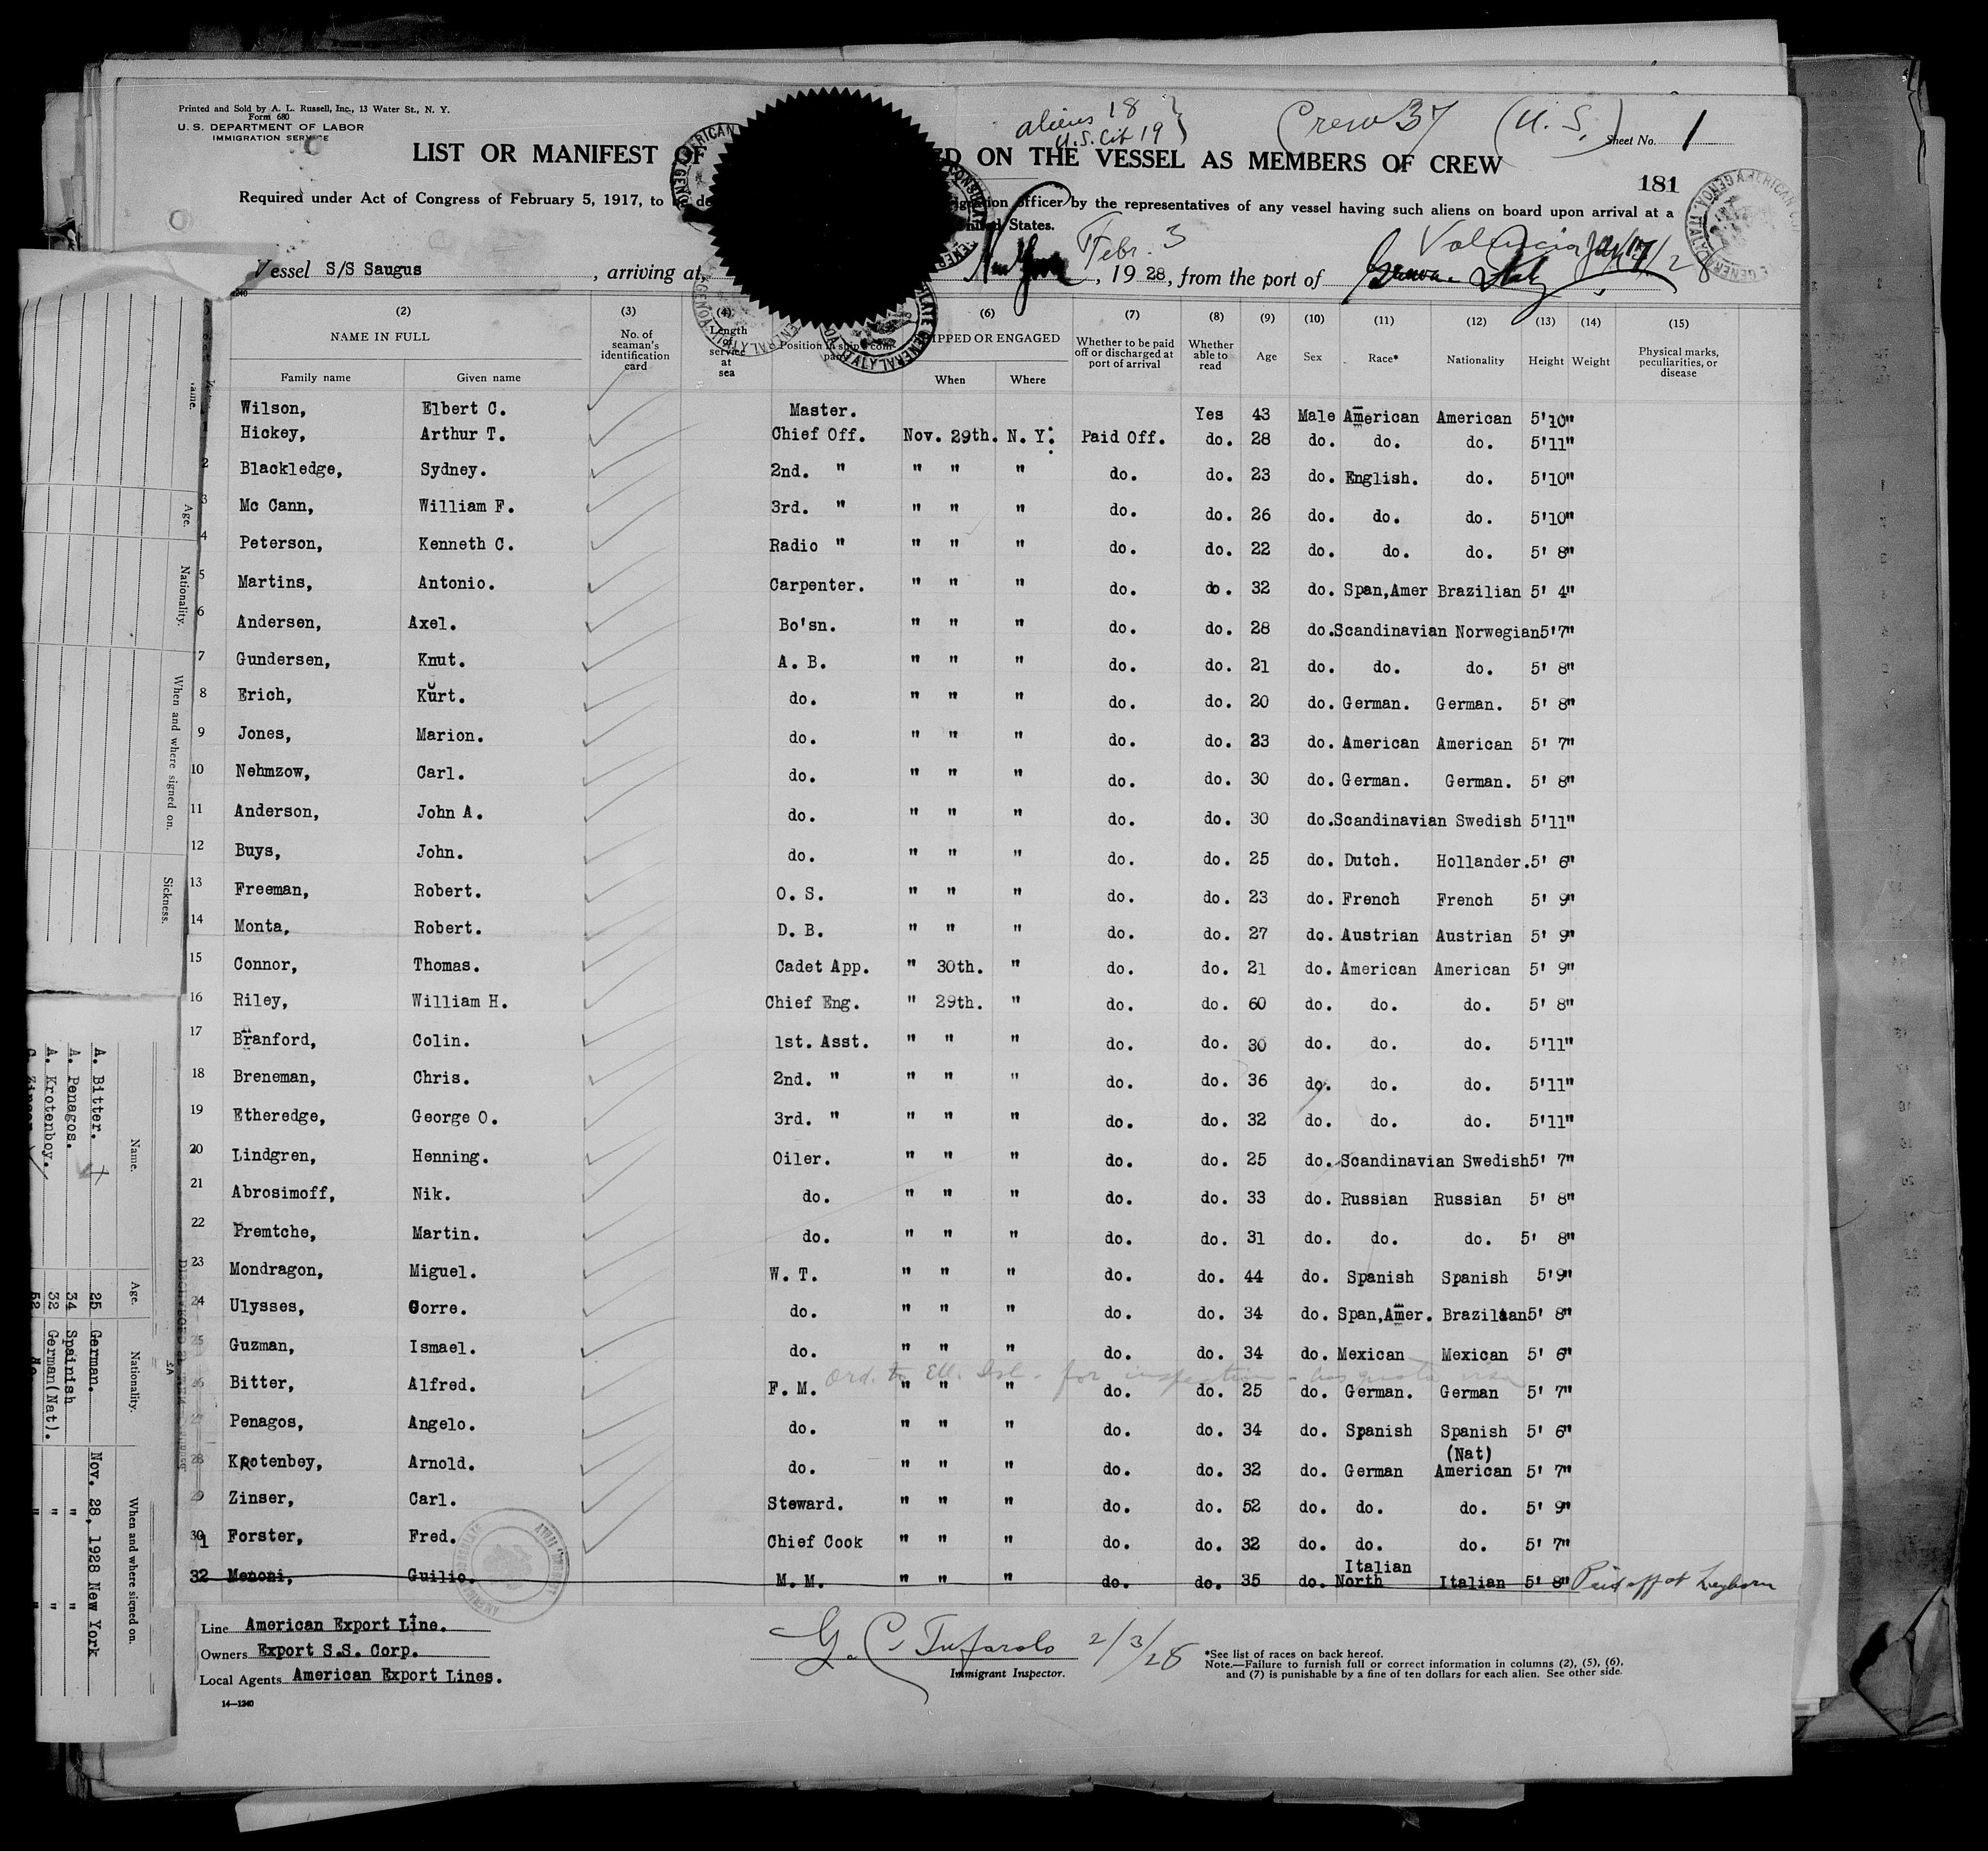 Printed and Sold by A. L. Russell, Inc., 13 Water St., N. Y.
Form 680
U. S. DEPARTMENT OF LABOR
IMMIGRATION SERVICE
aliens 18
U.S. Cit 19
Crew 37 (U. S.)
Sheet No. 1
LIST OR MANIFEST OF ED ON THE VESSEL AS MEMBERS OF CREW
181
Required under Act of Congress of February 5, 1917, to be officer by the representatives of any vessel having such aliens on board upon arrival at a
United States.
Vessel S/S Saugus, arriving at New York Febr. 3, 1928, from the port of Genoa Italy
Valencia
(2) (3) (4) (6) (7) (8) (9) (10) (11) (12) (13) (14) (15)
NAME IN FULL
Family name Given name
No. of seaman's identification card
Length of service at sea
Position in ship's company
SHIPPED OR ENGAGED
When Where
Whether to be paid off or discharged at port of arrival
Whether able to read
Age Sex Race* Nationality Height Weight
Physical marks, peculiarities, or disease
Wilson, Elbert C. Master. Yes 43 Male American American 5'10"
Hickey, Arthur T. Chief Off. Nov. 29th. N. Y. Paid Off. do. 28 do. do. do. 5'11"
2 Blackledge, Sydney. 2nd. " " " " do. do. 23 do. English. do. 5'10"
3 Mc Cann, William F. 3rd. " " " " do. do. 26 do. do. do. 5'10"
4 Peterson, Kenneth C. Radio " " " " do. do. 22 do. do. do. 5' 8"
5 Martins, Antonio. Carpenter. " " " do. do. 32 do. Span,Amer Brazilian 5' 4"
6 Andersen, Axel. Bo'sn. " " " do. do. 28 do. Scandinavian Norwegian 5'7"
7 Gundersen, Knut. A. B. " " " do. do. 21 do. do. do. 5' 8"
8 Erich, Kurt. do. " " " do. do. 20 do. German. German. 5' 8"
9 Jones, Marion. do. " " " do. do. 23 do. American American 5' 7"
10 Nehmzow, Carl. do. " " " do. do. 30 do. German. German. 5' 8"
11 Anderson, John A. do. " " " do. do. 30 do. Scandinavian Swedish 5'11"
12 Buys, John. do. " " " do. do. 25 do. Dutch. Hollander. 5' 6"
13 Freeman, Robert. O. S. " " " do. do. 23 do. French French 5' 9"
14 Monta, Robert. D. B. " " " do. do. 27 do. Austrian Austrian 5' 9"
15 Connor, Thomas. Cadet App. " 30th. " do. do. 21 do. American American 5' 9"
16 Riley, William H. Chief Eng. " 29th. " do. do. 60 do. do. do. 5' 8"
17 Branford, Colin. 1st. Asst. " " " do. do. 30 do. do. do. 5'11"
18 Breneman, Chris. 2nd. " " " " do. do. 36 do. do. do. 5'11"
19 Etheredge, George O. 3rd. " " " " do. do. 32 do. do. do. 5'11"
20 Lindgren, Henning. Oiler. " " " do. do. 25 do. Scandinavian Swedish 5' 7"
21 Abrosimoff, Nik. do. " " " do. do. 33 do. Russian Russian 5' 8"
22 Premtche, Martin. do. " " " do. do. 31 do. do. do. 5' 8"
23 Mondragon, Miguel. W. T. " " " do. do. 44 do. Spanish Spanish 5'9"
24 Ulysses, Gorre. do. " " " do. do. 34 do. Span,Amer. Brazilian 5' 8"
25 Guzman, Ismael. do. " " " do. do. 34 do. Mexican Mexican 5' 6"
Ord. to Ell. Isl. - for inspection - has quota visa
26 Bitter, Alfred. F. M. " " " do. do. 25 do. German. German 5' 7"
27 Penagos, Angelo. do. " " " do. do. 34 do. Spanish Spanish 5' 6"
28 Krotenbey, Arnold. do. " " " do. do. 32 do. German (Nat) American 5' 7"
29 Zinser, Carl. Steward. " " " do. do. 52 do. do. do. 5' 9"
30 1 Forster, Fred. Chief Cook " " " do. do. 32 do. do. do. 5' 7"
32 Menoni, Guilio. M. M. " " " do. do. 35 do. Italian North Italian 5' 8" Paid off at Leghorn
Line American Export Line.
Owners Export S.S. Corp.
Local Agents American Export Lines.
14—1240
2/3/28
Immigrant Inspector.
*See list of races on back hereof.
Note.—Failure to furnish full or correct information in columns (2), (5), (6),
and (7) is punishable by a fine of ten dollars for each alien. See other side.
Name. Age. Nationality. When and where signed on. Sickness.
Name. Age. Nationality. When and where signed on.
A. Bitter. 25 German. Nov. 28, 1928 New York
A. Penagos. 34 Spainish " "
A. Krotenboy. 32 German(Nat). " "
C. Zinser 52 do. " "